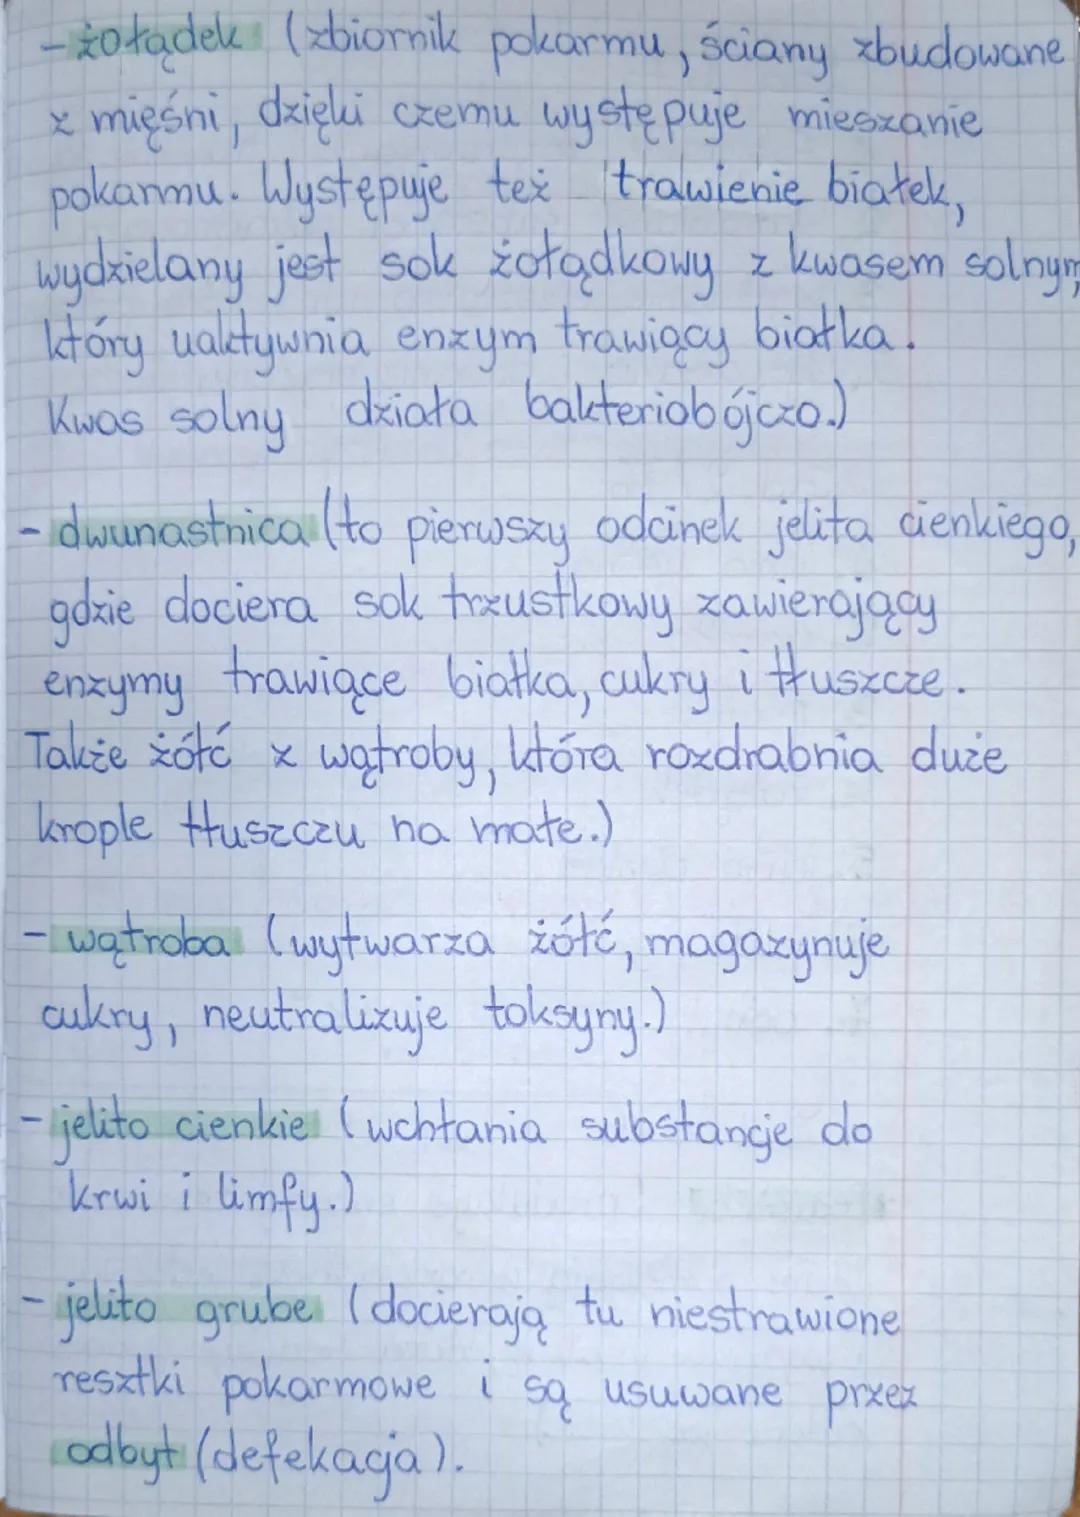 - żołądek (zbiornik pokarmu, ściany zbudowane
z mięśni, dzięki czemu występuje mieszanie
pokarmu. Występuje też trawienie białek,
wydzielany jest sok żołądkowy z kwasem solnym,
który uaktywnia enzym trawiący białka.
Kwas solny działa bakteriobójczo.)
- dwunastnica (to pierwszy odcinek jelita cienkiego,
gdzie dociera sok trzustkowy zawierający
enzymy trawiące białka, cukry i tłuszcze.
Także żółć z wątroby, która rozdrabnia duże
krople tłuszczu na małe.)
- wątroba (wytwarza żółć, magazynuje
cukry, neutralizuje toksyny.)
- jelito cienkie (wchłania substancje do
krwi i limfy.)
- jelito grube (docierają tu niestrawione
resztki pokarmowe i są usuwane przez
odbyt (defekacja).